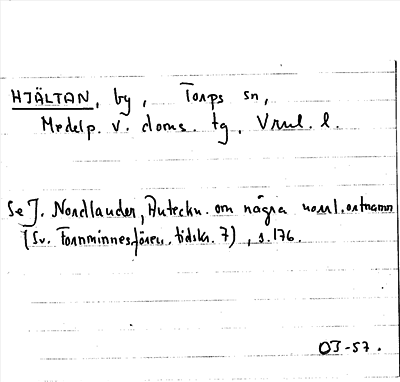 HJÄLTAN, by, Torps sn,
Medelp. v. doms. tg, Vnul. l.
Se J. Nordlander, Anteckn. om några norrl. ortnamn
(Sv. Fornminnesfören. tidskr. 7), s. 176.
OJ-57.